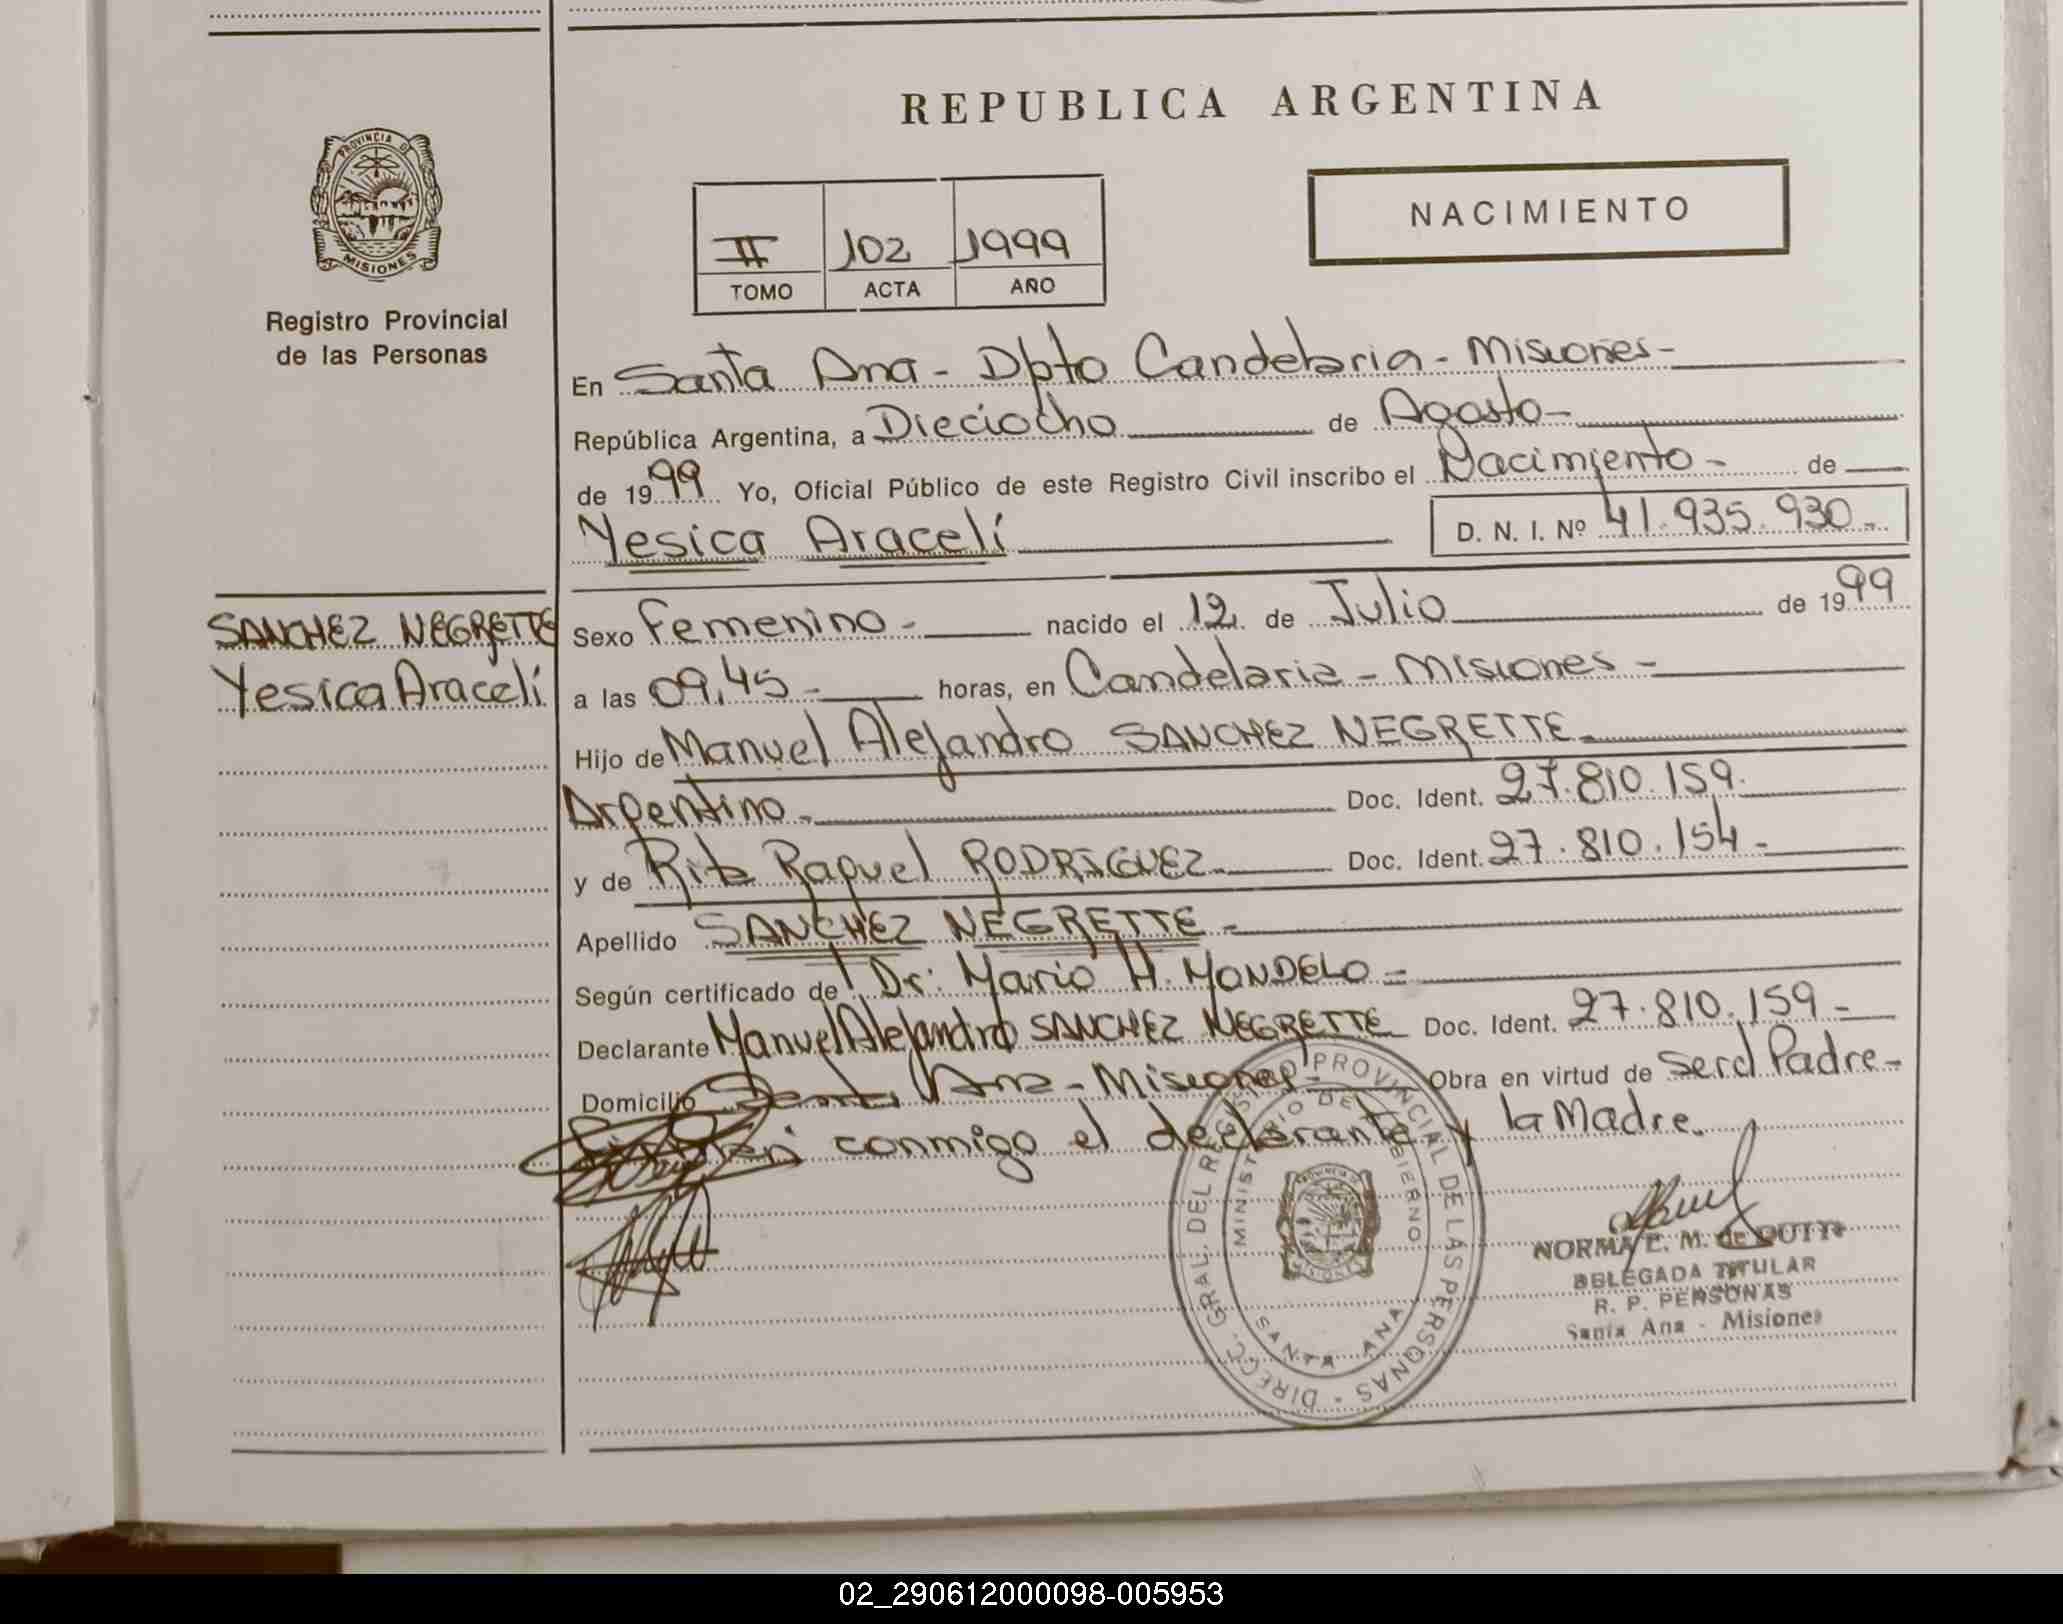 REPUBLICA ARGENTINA
PROVINCIA DE
MISIONES
Registro Provincial
de las Personas
II 102 1999
TOMO ACTA AÑO
NACIMIENTO
En Santa Ana - Dpto Candelaria - Misiones -
República Argentina, a Dieciocho de Agosto -
de 1999 Yo, Oficial Público de este Registro Civil inscribo el Nacimiento - de
Yesica Araceli D. N. I. Nº 41.935.930 -
SANCHEZ NEGRETTE
Yesica Araceli
Sexo Femenino - nacido el 12 de Julio de 1999
a las 09,45 - horas, en Candelaria - Misiones -
Hijo de Manuel Alejandro SANCHEZ NEGRETTE -
Argentino - Doc. Ident. 27.810.159.
y de Rita Raquel RODRIGUEZ - Doc. Ident. 27.810.154 -
Apellido SANCHEZ NEGRETTE -
Según certificado de Dr: Mario H. MONDELO -
Declarante Manuel Alejandro SANCHEZ NEGRETTE Doc. Ident. 27.810.159 -
Domicilio Santa Ana - Misiones - Obra en virtud de ser el Padre -
conmigo el declarante y la Madre.
DIRECC. GRAL. DEL REGISTRO PROVINCIAL DE LAS PERSONAS -
MINISTERIO DE GOBIERNO
SANTA ANA
NORMA E. M. de
DELEGADA TITULAR
R. P. PERSONAS
Santa Ana - Misiones
02_290612000098-005953